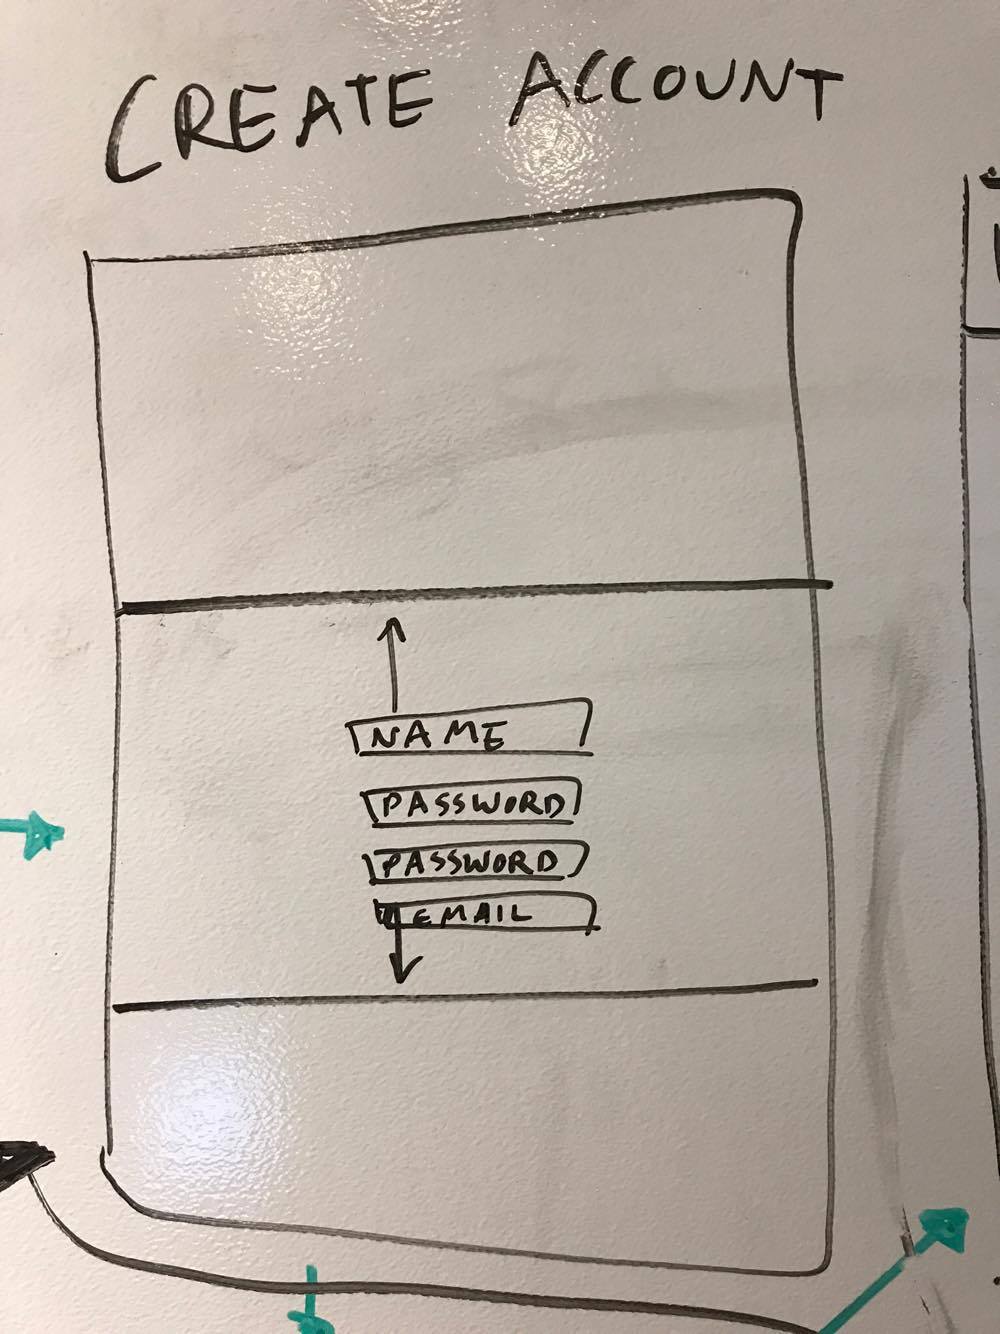 CREATE ACCOUNT
NAME
PASSWORD
PASSWORD
EMAIL